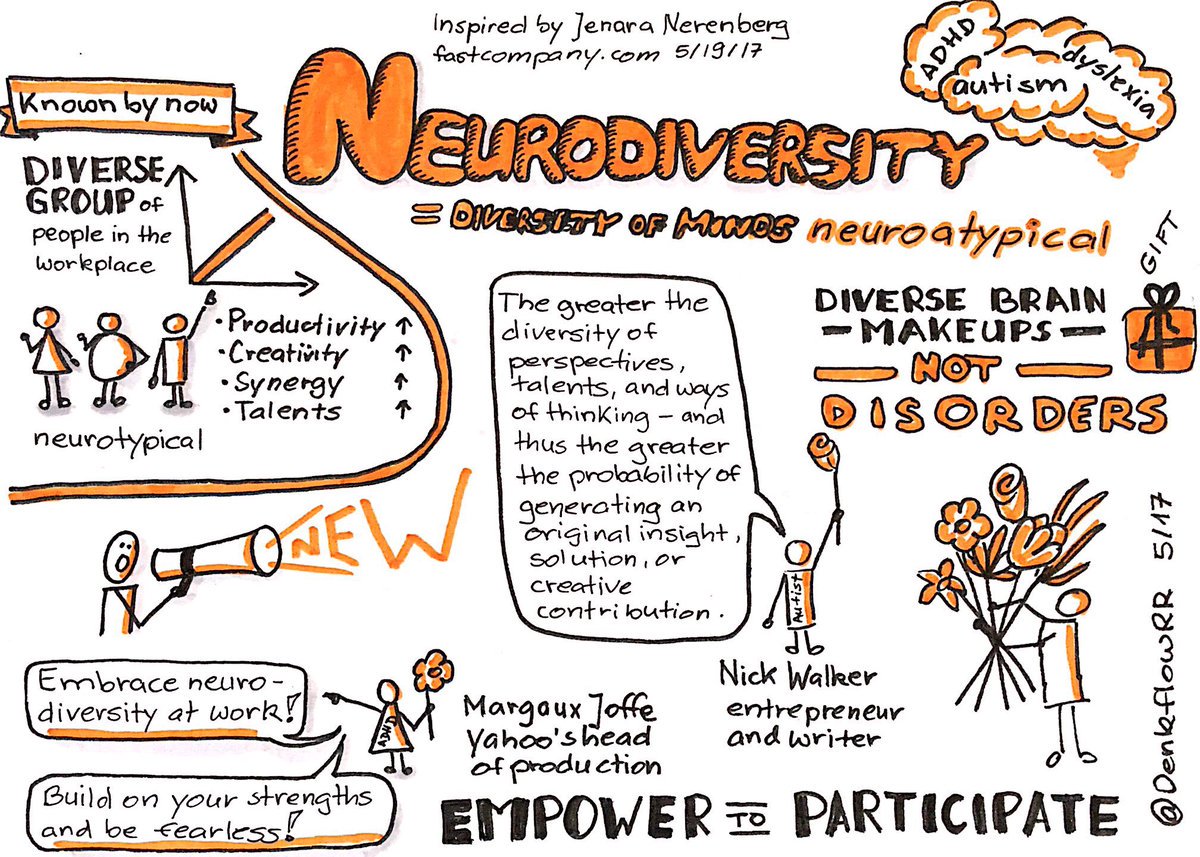 Inspired by Jenara Nerenberg
fastcompany.com 5/19/17
Known by now
NEURODIVERSITY
= DIVERSITY OF MINDS
neuroatypical
ADHD
autism
dyslexia
DIVERSE
GROUP of
people in the
workplace
• Productivity ↑
• Creativity ↑
• Synergy ↑
• Talents ↑
neurotypical
NEW
The greater the
diversity of
perspectives,
talents, and ways
of thinking – and
thus the greater
the probability of
generating an
original insight,
solution, or
creative
contribution.
Autist
Nick Walker
entrepreneur
and writer
GIFT
DIVERSE BRAIN
– MAKEUPS –
NOT
DISORDERS
Embrace neuro-
diversity at work!
Build on your strengths
and be fearless!
ADHD
Margaux Joffe
Yahoo's head
of production
EMPOWER TO PARTICIPATE
@DenkflowRR 5/17